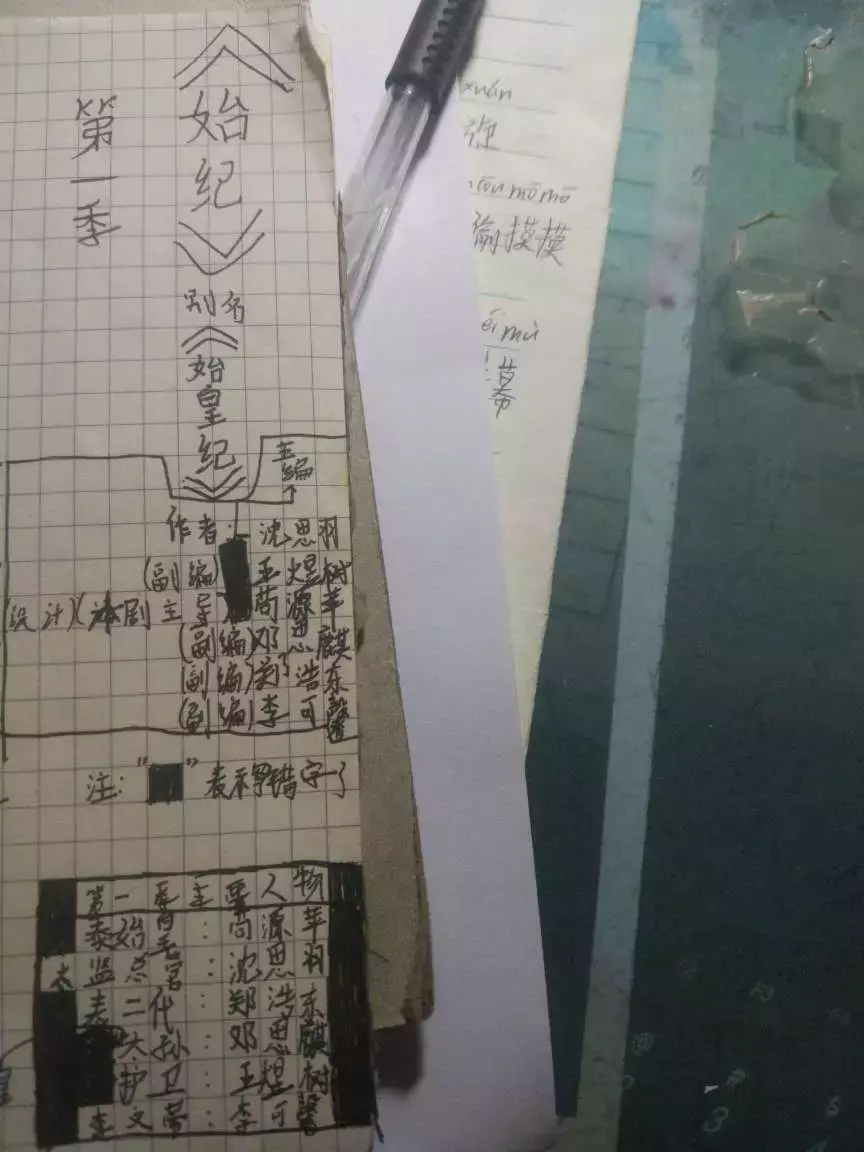 《始纪》
第一季
别名
《始皇纪》
主编
作者：沈思羽
(副编)王煜树
(设计)(本剧主导)苟源苹
(副编)邓思麒
(副编)关了浩东
(副编)李可馨
注:"■"表示写错字了
第一季主要人物
秦始皇:苟源苹
太监总官:沈思羽
秦二代:郑浩东
大孙:邓思麒
护卫:王煜树
李文蒂:李可馨
xuán
mōmō
偷摸摸
mù
幕